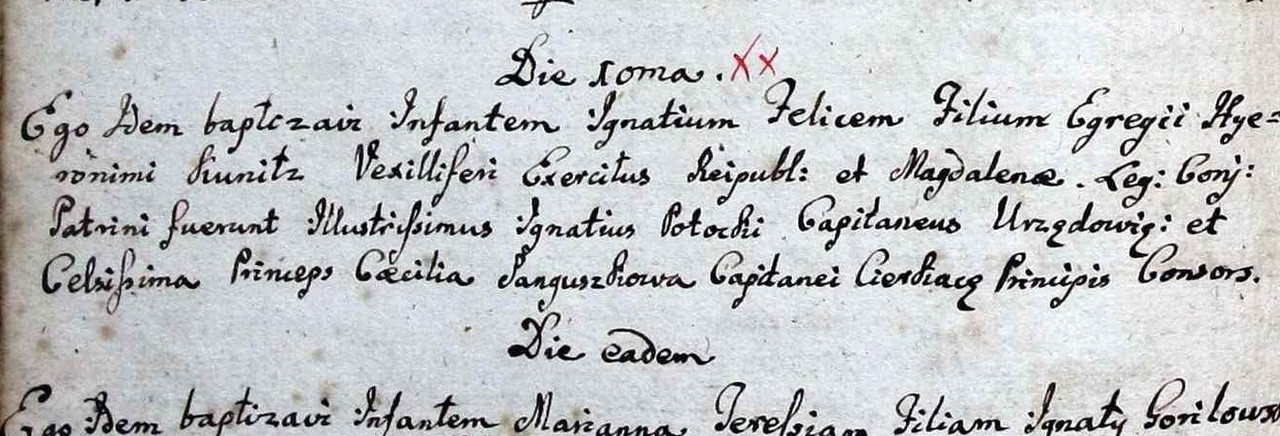 Die 10ma. XX
Ego Idem baptizavi Infantem Ignatium Felicem Filium Egregii Hye=
ronimi Kunitz Vexilliferi Exercitus Reipubl: et Magdalenæ. Leg: Conj:
Patrini fuerunt Illustrissimus Ignatius Potocki Capitaneus Urzędowię: et
Celsissima Princeps Cæcilia Sanguszkowa Capitanei Cierkacę Principis Consors.
Die eadem
Ego Idem baptizavi Infantem Marianna Teressiam Filiam Ignatij